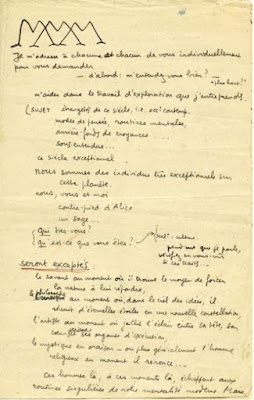 Je m'adresse à chacune et chacun de vous individuellement
pour vous demander
— d'abord : m'entendez-vous bien ?
— plus haut !
m'aider dans le travail d'exploration que j'entreprends.
(SUJET étrangeté de ce siècle, i.e. occ. contemp.
modes de pensée, routines mentales,
arrière-fonds de croyances
sous-entendus...
ce siècle exceptionnel
nous sommes des individus très exceptionnels sur
cette planète.
nous, vous et moi
contre-pied d'Alice
un sage...
qui êtes-vous ?
qu'est-ce que vous êtes ?
pendant que je parle,
vérifiez en vous-même
si ces
seront exceptés :
le savant au moment où il trouve le moyen de forcer
la nature à lui répondre,
le philosophe au moment où, dans le ciel des idées, il
réunit d'anciennes étoiles en une nouvelle constellation,
l'artiste au moment où jaillit l'éclair entre sa tête, son
cœur et ses organes d'exécution,
le mystique en oraison — ou plus généralement l'homme
religieux au moment où il renonce...
Ces hommes-là, à ces moments-là, échappent aux
routines singulières de notre mentalité moderne. Mais